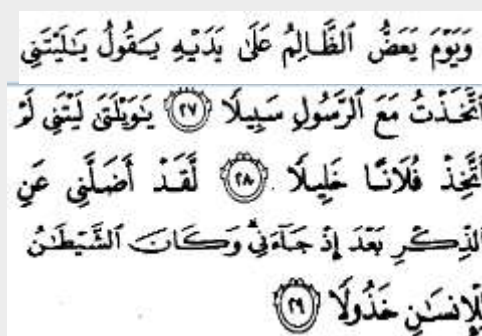 وَيَوْمَ يَعَضُّ ٱلظَّالِمُ عَلَىٰ يَدَيْهِ يَقُولُ يَٰلَيْتَنِى
ٱتَّخَذْتُ مَعَ ٱلرَّسُولِ سَبِيلًا ٢٧ يَٰوَيْلَتَىٰ لَيْتَنِى لَمْ
أَتَّخِذْ فُلَانًا خَلِيلًا ٢٨ لَّقَدْ أَضَلَّنِى عَنِ
ٱلذِّكْرِ بَعْدَ إِذْ جَآءَنِى ۗ وَكَانَ ٱلشَّيْطَٰنُ
لِلْإِنسَٰنِ خَذُولًا ٢٩